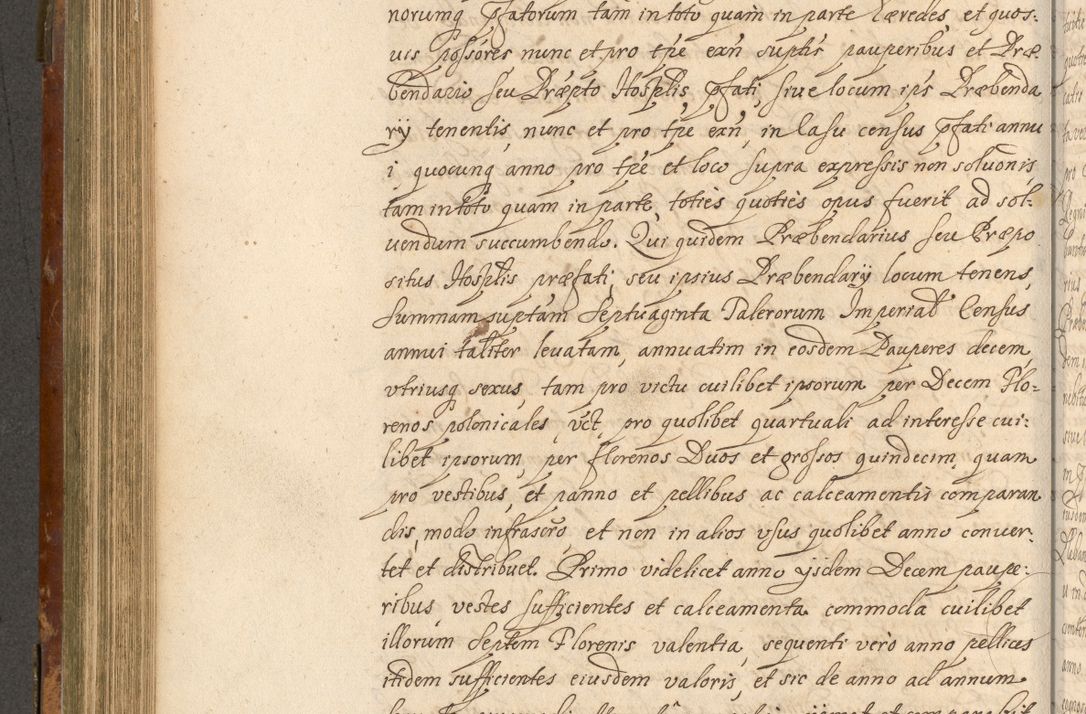 norumq Pfatorum tam in toto quam in parte hæredes, et quos:
uis possores nunc et pro tpe exn suptis pauperibus et Præ
bendario seu Præpto Hosplis Pfati sive locum ips Præbenda
rÿ tenentis, nunc et pro tpe exn, in Casu census Pfati annu
i quocunq anno pro tpe et loco supra expressis non solvonis
tam in toto quam in parte, toties quoties opus fuerit ad sol:
uendum succumbendo. Qui quidem Præbendarius seu Præpo
situs Hosplis præfati, seu ipsius Præbendarÿ locum tenens,
summam suptam Septuaginta Talerorum Imperial Census
annui taliter leuatam, annuatim in eosdem Pauperes decem,
vtriusq sexus, tam pro victu cuilibet ipsorum per Decem Flo:
renos polonicales, vct, pro quolibet quartuali ad interesse cui:
libet ipsorum, per florenos Duos et grossos quindecim, quam
pro vestibus, et panno et pellibus ac calceamentis comparan
dis, modo infrascro, et non in alios vsus quolibet anno conuer:
tet et distribuet. Primo videlicet anno ÿsdem Decem paupe:
ribus vestes sufficientes et calceamenta commoda cuilibet
illorum Septem Florenis valentia, sequenti vero anno pellices
itidem sufficientes eiusdem valoris, et sic de anno ad annum